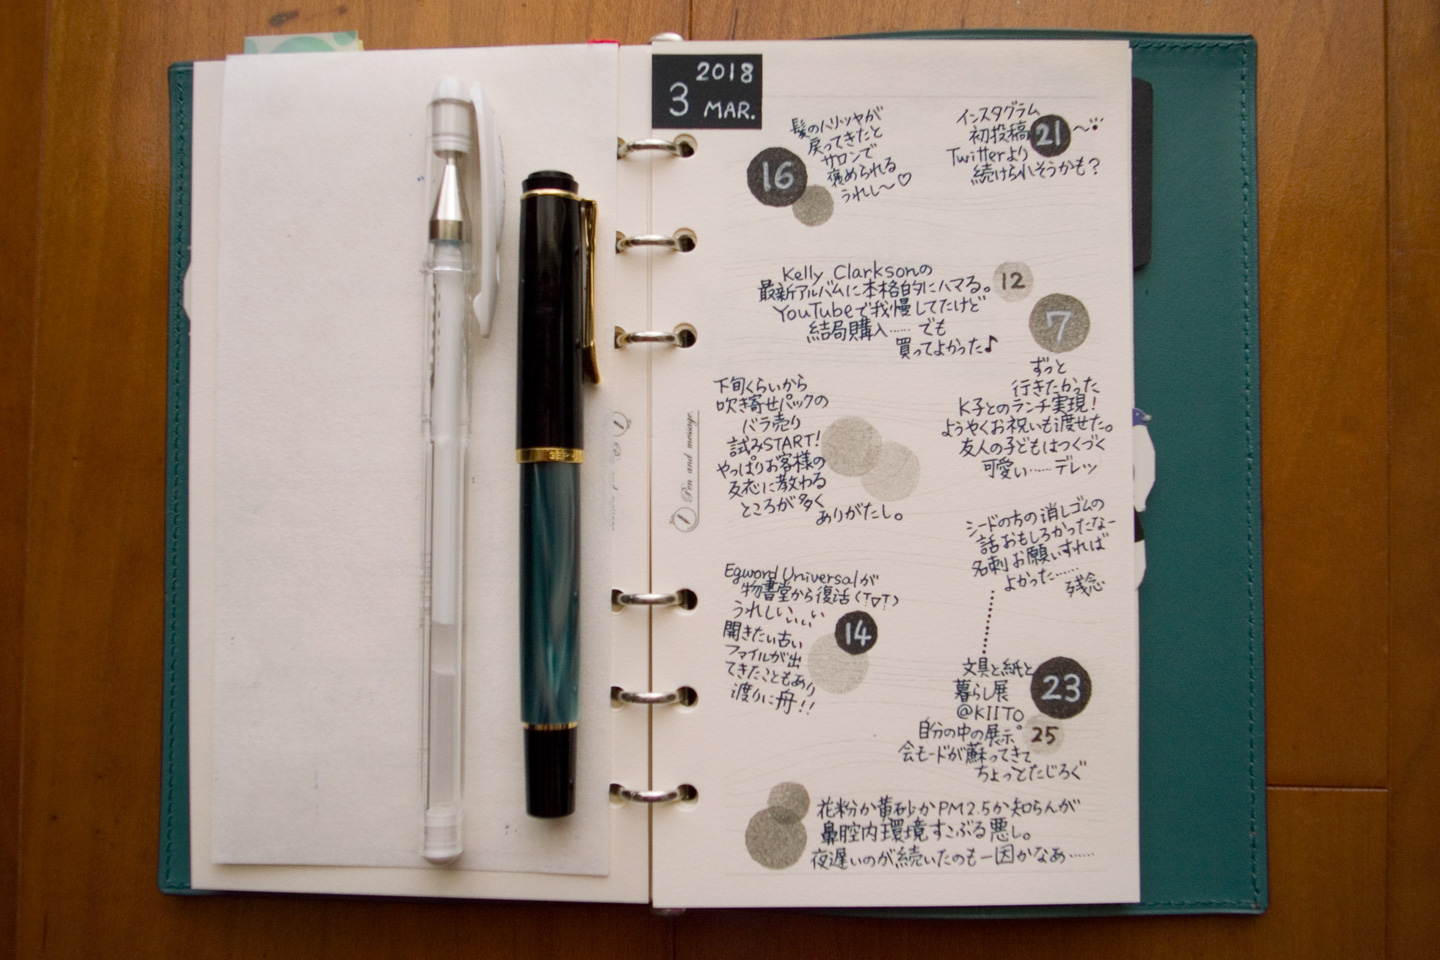 2018
3 MAR.
髪のハリ、ツヤが
戻ってきたと
サロンで
褒められる
うれし〜♡
16
インスタグラム
初投稿
21
〜
Twitterより
続けられそうかも?
Kelly Clarksonの
最新アルバムに本格的にハマる。
YouTubeで我慢してたけど
結局購入…… でも
買ってよかった♪
12
7
ずっと
行きたかった
K子とのランチ実現!
ようやくお祝いも渡せた。
友人の子どもはつくづく
可愛い…… デレッ
下旬くらいから
吹き寄せパックの
バラ売り
試みSTART!
やっぱりお客様の
反応に教わる
ところが多く
ありがたし。
Pen and message.
シードのちの消しゴムの
話おもしろかったなー
名刺お願いすれば
よかった……
残念
Egword Universalが
物書堂から復活(T▽T)
うれしいいいい
開きたい古い
ファイルが出
てきたこともあり
渡りに舟!!
14
文具と紙と
暮らし展
@KIITO
23
自分の中の展示
25
会モードが蘇ってきて
ちょっとたじろぐ
花粉か黄砂かPM2.5か知らんが
鼻腔内環境すこぶる悪し。
夜遅いのが続いたのも一因かなあ……